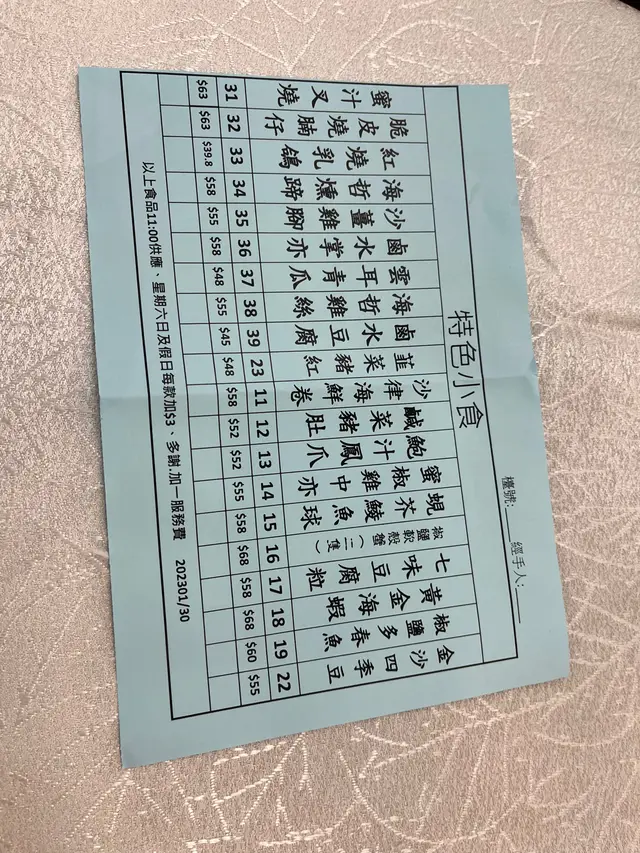 檯號:____ 經手人:____
特色小食
蜜汁叉燒
31
$63
脆皮燒腩仔
32
$63
紅燒乳鴿
33
$39.8
海哲燻蹄
34
$58
沙薑雞腳
35
$55
鹵水掌亦
36
$58
雲耳青瓜
37
$48
海哲雞絲
38
$55
鹵水豆腐
39
$45
韮菜豬紅
23
$48
沙律海鮮卷
11
$58
鹹菜豬肚
12
$52
鮑汁鳳爪
13
$52
蜜椒雞中亦
14
$55
蜆芥鯪魚球
15
$58
椒鹽軟殼蟹(二隻)
16
$68
七味豆腐粒
17
$58
黃金海蝦
18
$68
椒鹽多春魚
19
$60
金沙四季豆
22
$55
以上食品11:00供應、星期六日及假日每款加$3、多謝.加一服務費 202301/30